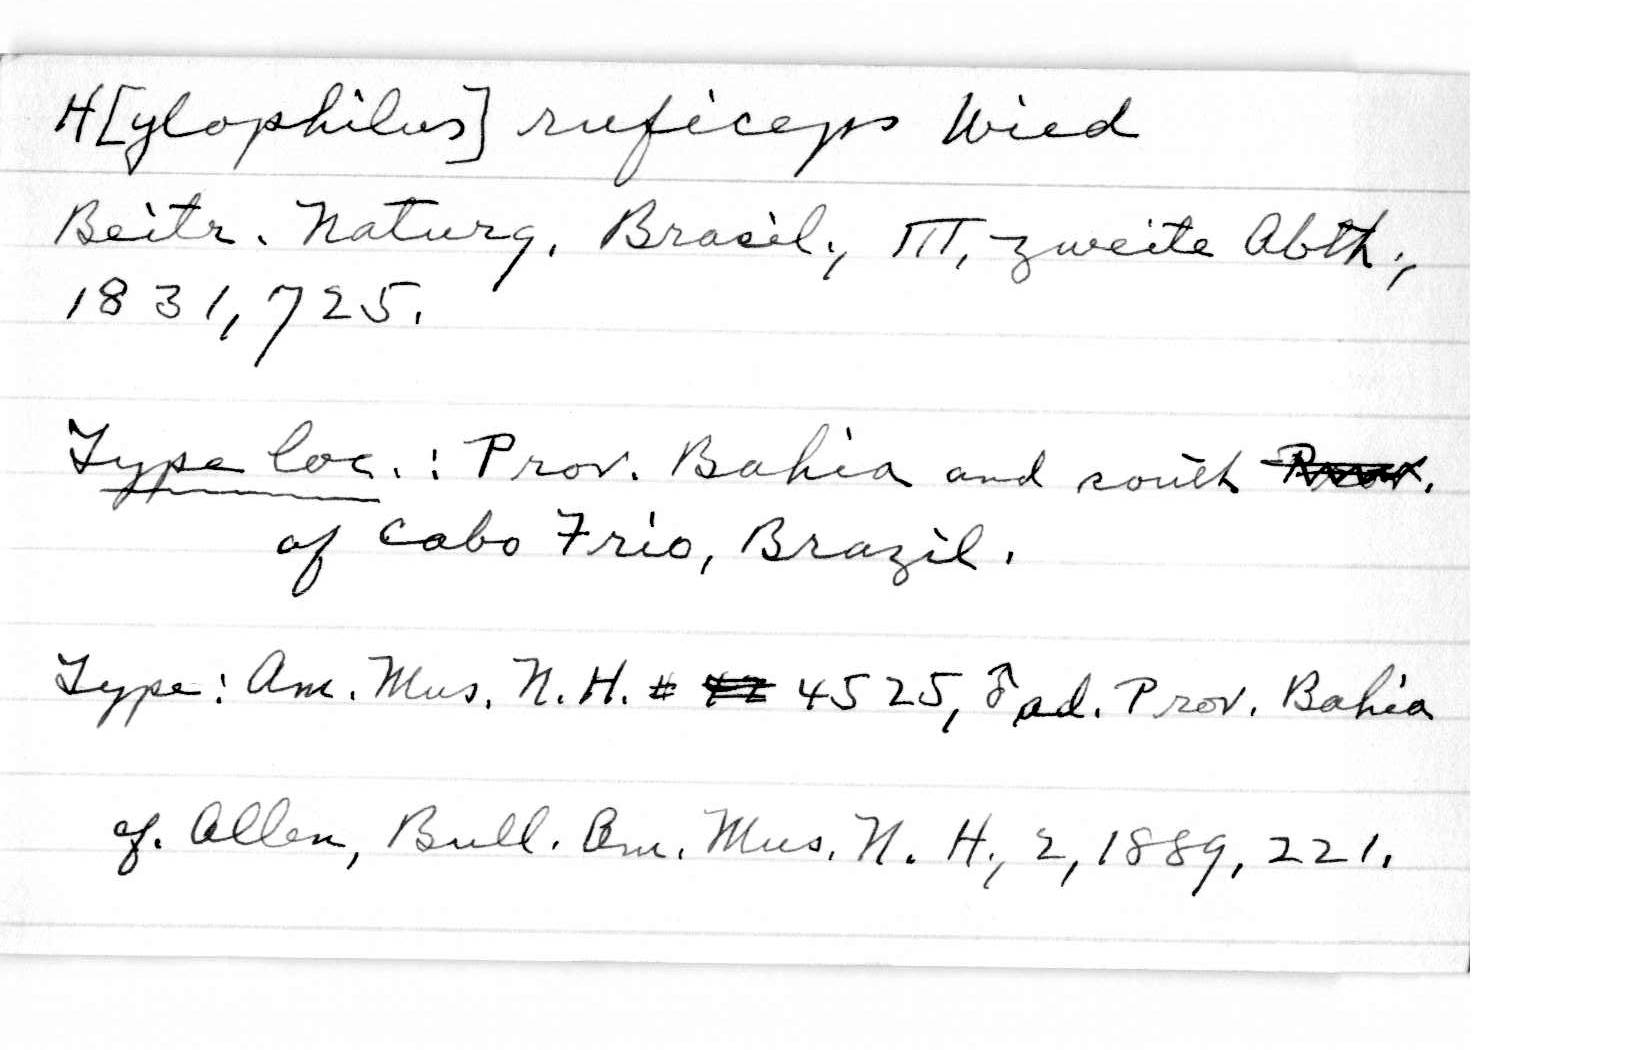 H[ylophilus] ruficeps Wied
Beitr. Naturg. Brasil., III, zweite Abth.,
1831, 725.
Type loc.: Prov. Bahia and south Prov.
of Cabo Frio, Brazil.
Type: Am. Mus. N. H. # 4525, ♂ ad. Prov. Bahia
cf. Allen, Bull. Am. Mus. N. H., 2, 1889, 221.